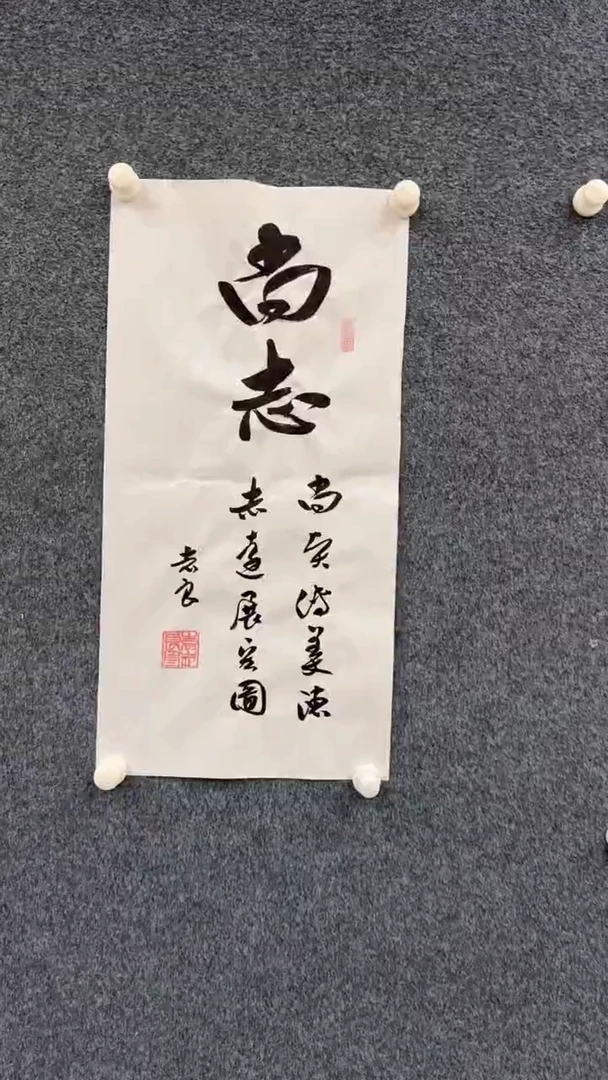 尚志
尚贤传美德
志远展宏图
志良